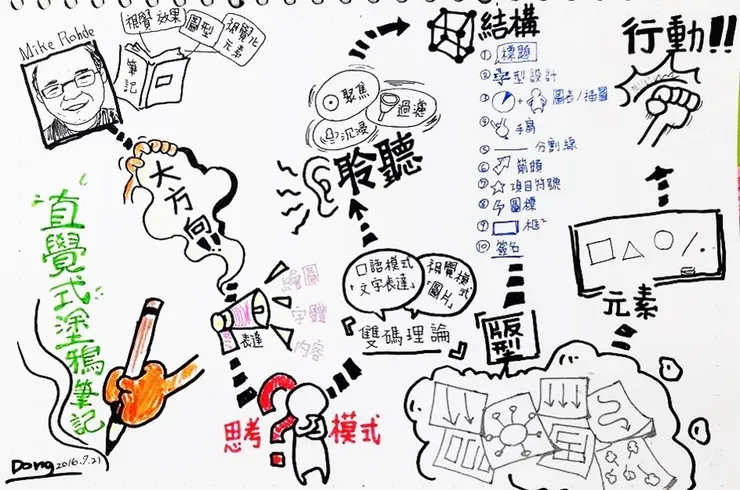 Mike Rohde
視覺效果
圖型
視覺化
元素
筆記
大方向!!
"直覺式塗鴉筆記"
Dong 2016.7.21
表達
繪圖
字體
內容
思考
模式
口語模式
「文字表達」
視覺模式
「圖片」
『雙碼理論』
聆聽
聚焦
過濾
沉浸
結構
① 標題
② 字型設計
③ + 圖表/插圖
④ 手寫
⑤ 分割線
⑥ 箭頭
⑦ 項目符號
⑧ 圖標
⑨ 框
⑩ 簽名
「版型」
元素
行動!!